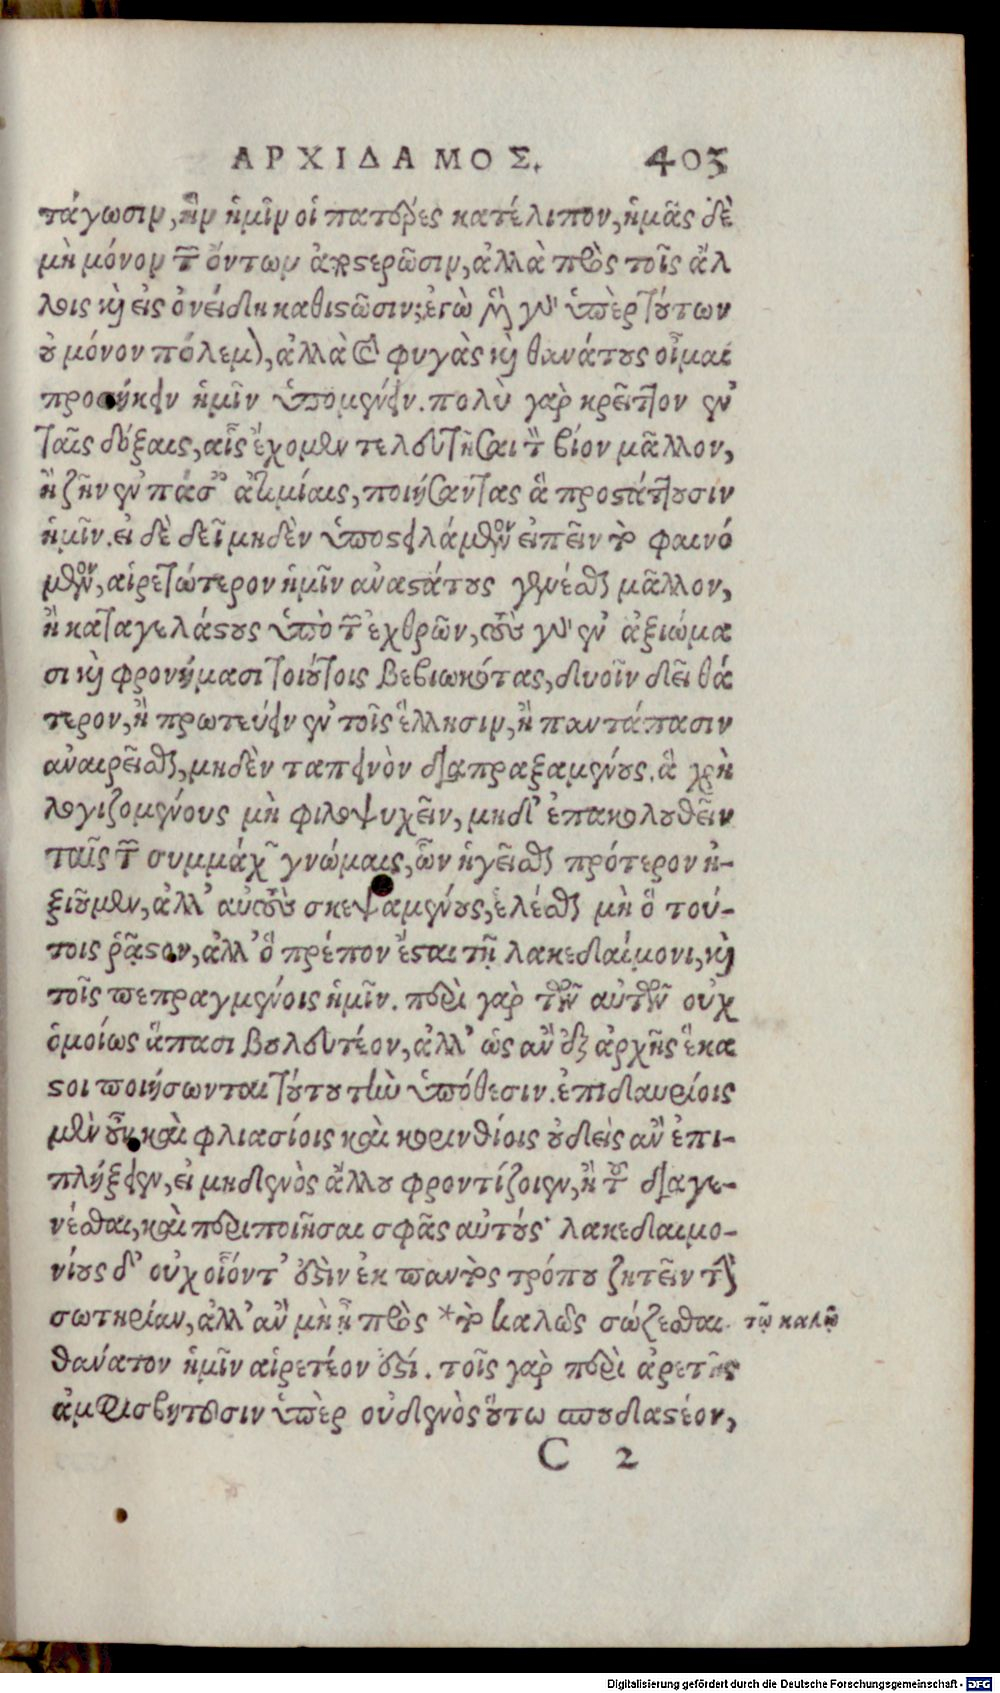 ΑΡΧΙΔΑΜΟΣ. 403
τάγωσιν, ἣν ἡμῖν οἱ πατέρες κατέλιπον, ἡμᾶς δὲ
μὴ μόνον τῶν ὄντων ἀποστερῶσιν, ἀλλὰ πρὸς τοῖς ἄλ
λοις καὶ εἰς ὀνείδη καθιστῶσιν; ἐγὼ μὲν γὰρ ὑπὲρ τούτων
οὐ μόνον πόλεμον, ἀλλὰ καὶ φυγὰς καὶ θανάτους οἶμαι
προσήκειν ἡμῖν ὑπομένειν. πολὺ γὰρ κρεῖττον ἐν
ταῖς δόξαις, αἷς ἔχομεν τελευτῆσαι τὸν βίον μᾶλλον,
ἢ ζῆν ἐν πάσαις ἀτιμίαις, ποιήσαντας ἃ προστάττουσιν
ἡμῖν. εἰ δὲ δεῖ μηδὲν ὑποστειλάμενον εἰπεῖν τὸ φαινό
μενον, αἱρετώτερον ἡμῖν ἀναστάτους γενέσθαι μᾶλλον,
ἢ καταγελάστους ὑπὸ τῶν ἐχθρῶν, τοὺς γὰρ ἐν ἀξιώμα
σι καὶ φρονήμασι τοιούτοις βεβιωκότας, δυοῖν δεῖ θά
τερον, ἢ πρωτεύειν ἐν τοῖς ἕλλησιν, ἢ παντάπασιν
ἀναιρεῖσθαι, μηδὲν ταπεινὸν διαπραξαμένους. ἃ χρὴ
λογιζομένους μὴ φιλοψυχεῖν, μηδ' ἐπακολουθεῖν
ταῖς τῶν συμμάχων γνώμαις, ὧν ἡγεῖσθαι πρότερον ἠ-
ξιοῦμεν, ἀλλ' αὐτοὺς σκεψαμένους, ἑλέσθαι μὴ ὃ τού-
τοις ῥᾷστον, ἀλλ' ὃ πρέπον ἔσται τῇ λακεδαίμονι, καὶ
τοῖς πεπραγμένοις ἡμῖν. περὶ γὰρ τῶν αὐτῶν οὐχ
ὁμοίως ἅπασι βουλευτέον, ἀλλ' ὡς ἂν ἐξ ἀρχῆς ἕκα
στοι ποιήσωνται τούτου τὴν ὑπόθεσιν. ἐπιδαυρίοις
μὲν οὖν καὶ φλιασίοις καὶ κορινθίοις οὐδεὶς ἂν ἐπι-
πλήξειεν, εἰ μηδενὸς ἄλλου φροντίζοιεν, ἢ τοῦ διαγε-
νέσθαι, καὶ περιποιῆσαι σφᾶς αὐτούς· λακεδαιμο-
νίους δ' οὐχ οἷόντ' ἐστὶν ἐκ παντὸς τρόπου ζητεῖν τὴν
σωτηρίαν, ἀλλ' ἂν μὴ ᾖ πρὸς *τὸ καλῶς σώζεσθαι. τῷ καλῶ
θάνατον ἡμῖν αἱρετέον ἐστί. τοῖς γὰρ περὶ ἀρετῆς
ἀμφισβητοῦσιν ὑπὲρ οὐδενὸς οὕτω σπουδαστέον,
C 2
Digitalisierung gefördert durch die Deutsche Forschungsgemeinschaft - DFG